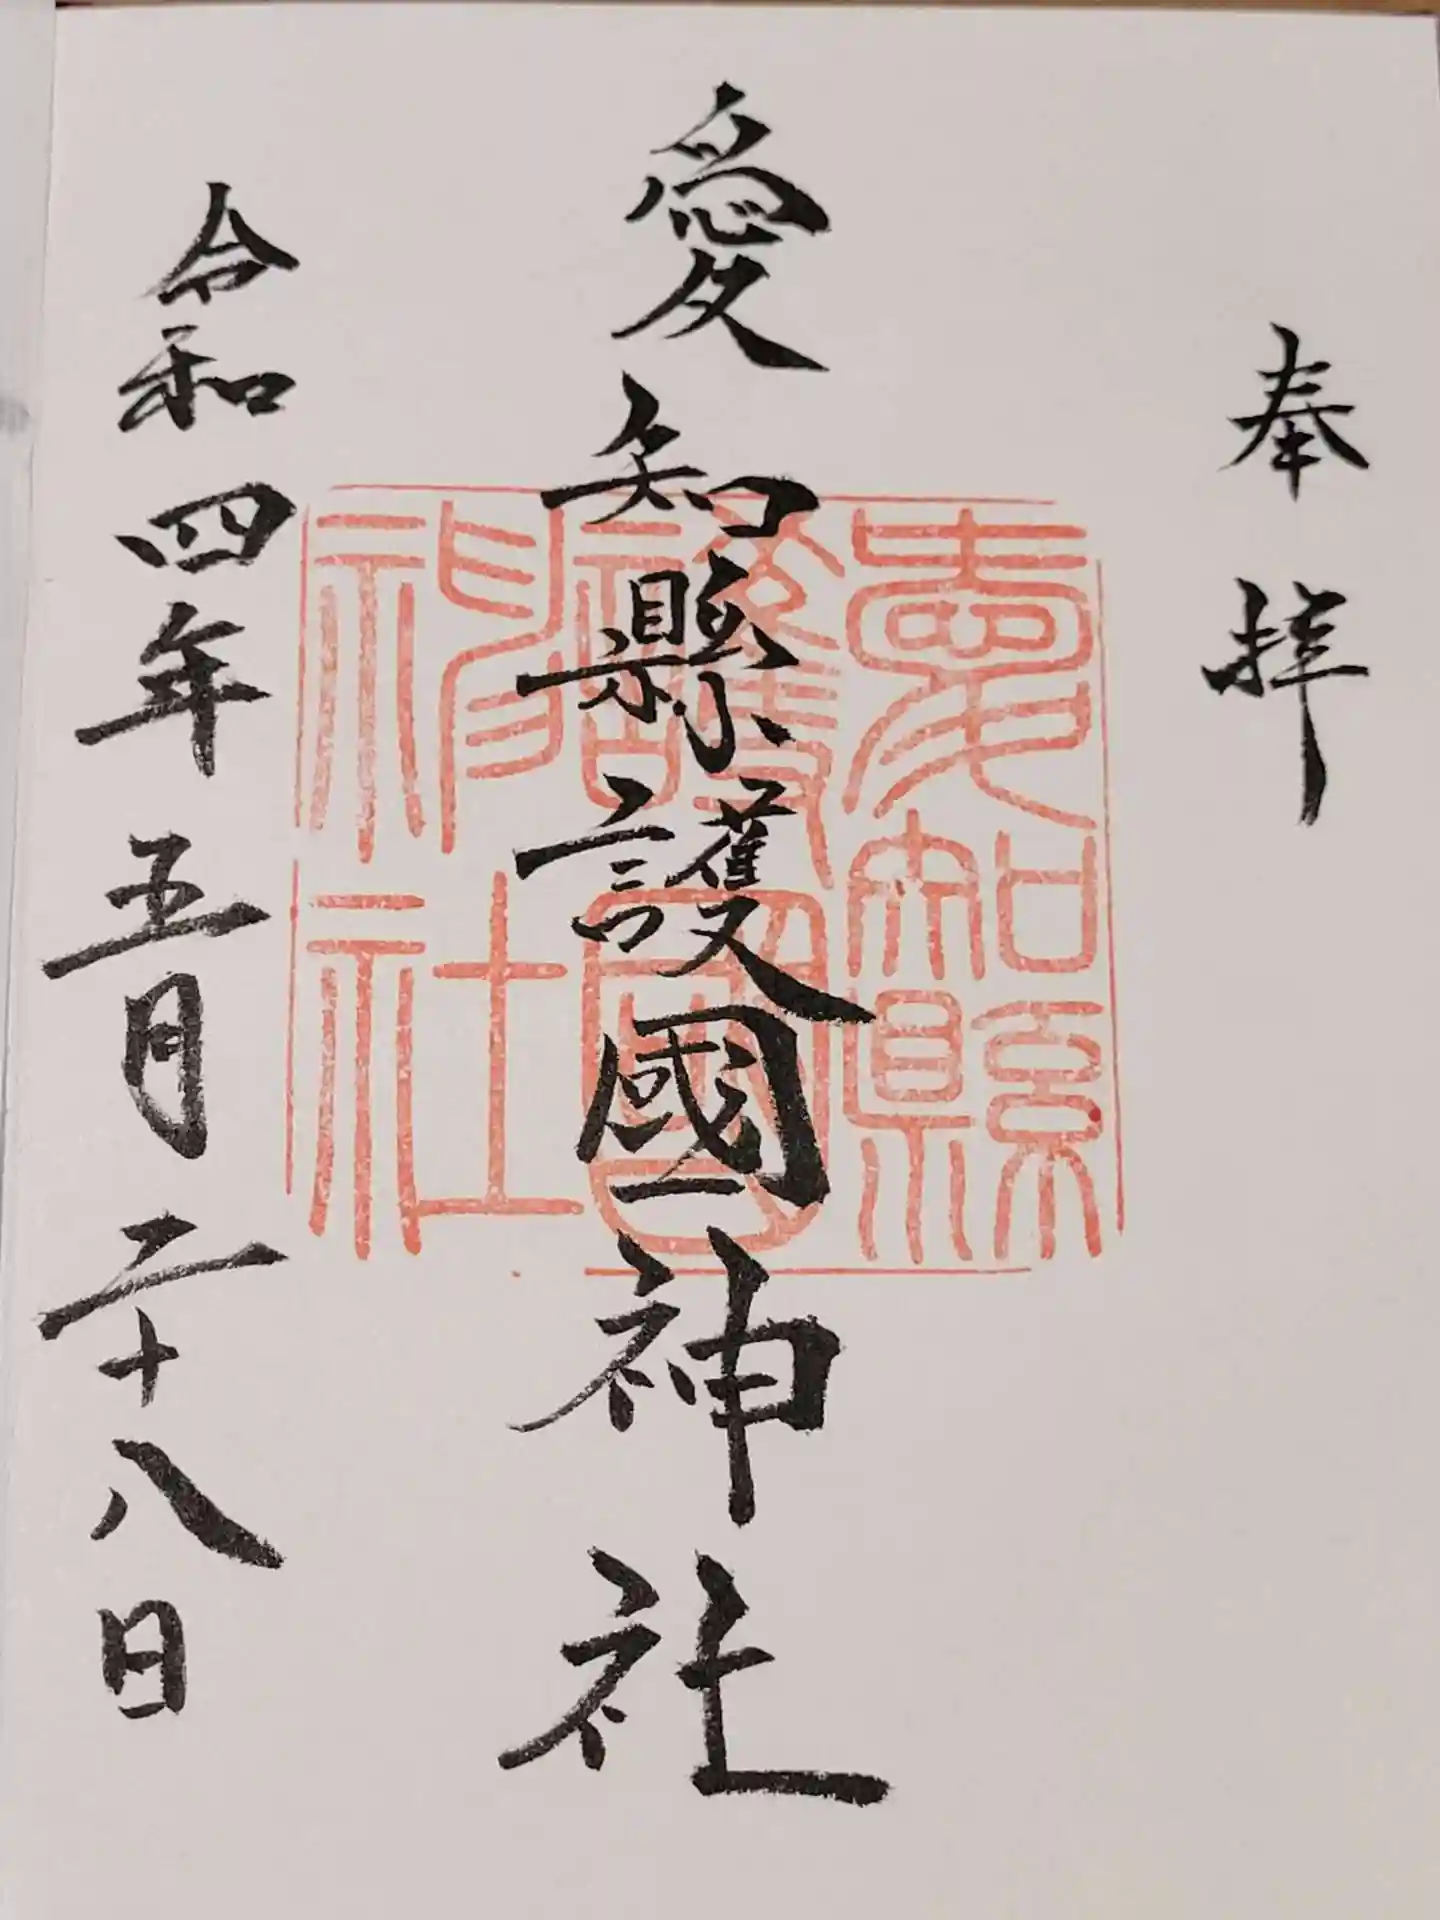 奉拝
愛知縣護國神社
愛知縣
護國
神社
令和四年五月二十八日